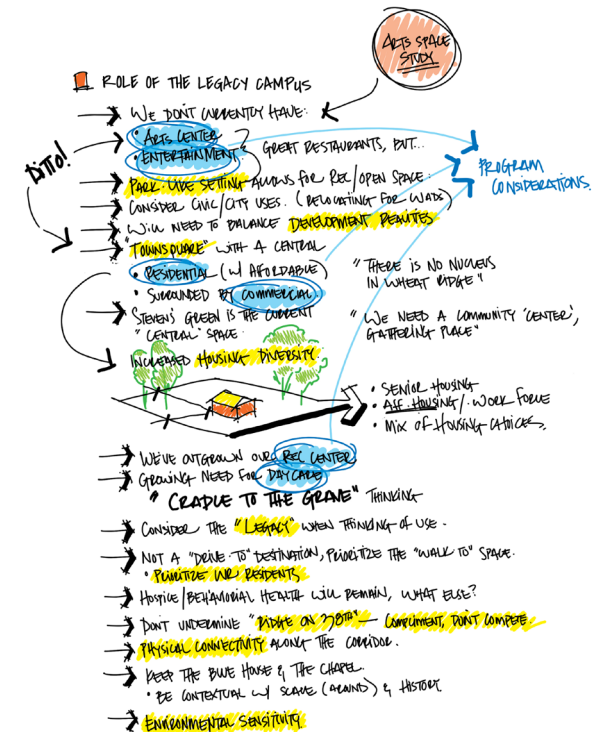 ARTS SPACE
STUDY
ROLE OF THE LEGACY CAMPUS
WE DON'T CURRENTLY HAVE:
• ARTS CENTER
• ENTERTAINMENT
GREAT RESTAURANTS, BUT...
DITTO!
PROGRAM
CONSIDERATIONS.
PARK-LIKE SETTING ALLOWS FOR REC/OPEN SPACE.
CONSIDER CIVIC/CITY USES. (RELOCATING FOR WADS)
WILL NEED TO BALANCE DEVELOPMENT REALITIES
"TOWNSQUARE" WITH A CENTRAL
• RESIDENTIAL (W/ AFFORDABLE)
• SURROUNDED BY COMMERCIAL.
"THERE IS NO NUCLEUS
IN WHEAT RIDGE"
STEVEN'S GREEN IS THE CURRENT
"CENTRAL" SPACE.
"WE NEED A COMMUNITY 'CENTER',
GATHERING PLACE"
INCREASED HOUSING DIVERSITY.
• SENIOR HOUSING
• AFF. HOUSING/. WORK FORCE
• MIX OF HOUSING CHOICES.
WE'VE OUTGROWN OUR REC CENTER
GROWING NEED FOR DAY CARE
"CRADLE TO THE GRAVE" THINKING
CONSIDER THE "LEGACY" WHEN THINKING OF USE.
NOT A "DRIVE TO" DESTINATION, PRIORITIZE THE "WALK TO" SPACE.
• PRIORITIZE WR RESIDENTS
HOSPICE/BEHAVIORAL HEALTH WILL REMAIN, WHAT ELSE?
DON'T UNDERMINE "RIDGE ON 38TH" — COMPLIMENT, DON'T COMPETE.
PHYSICAL CONNECTIVITY ALONG THE CORRIDOR.
KEEP THE BLUE HOUSE & THE CHAPEL.
• BE CONTEXTUAL W/ SCALE (AROUND) & HISTORY
ENVIRONMENTAL SENSITIVITY